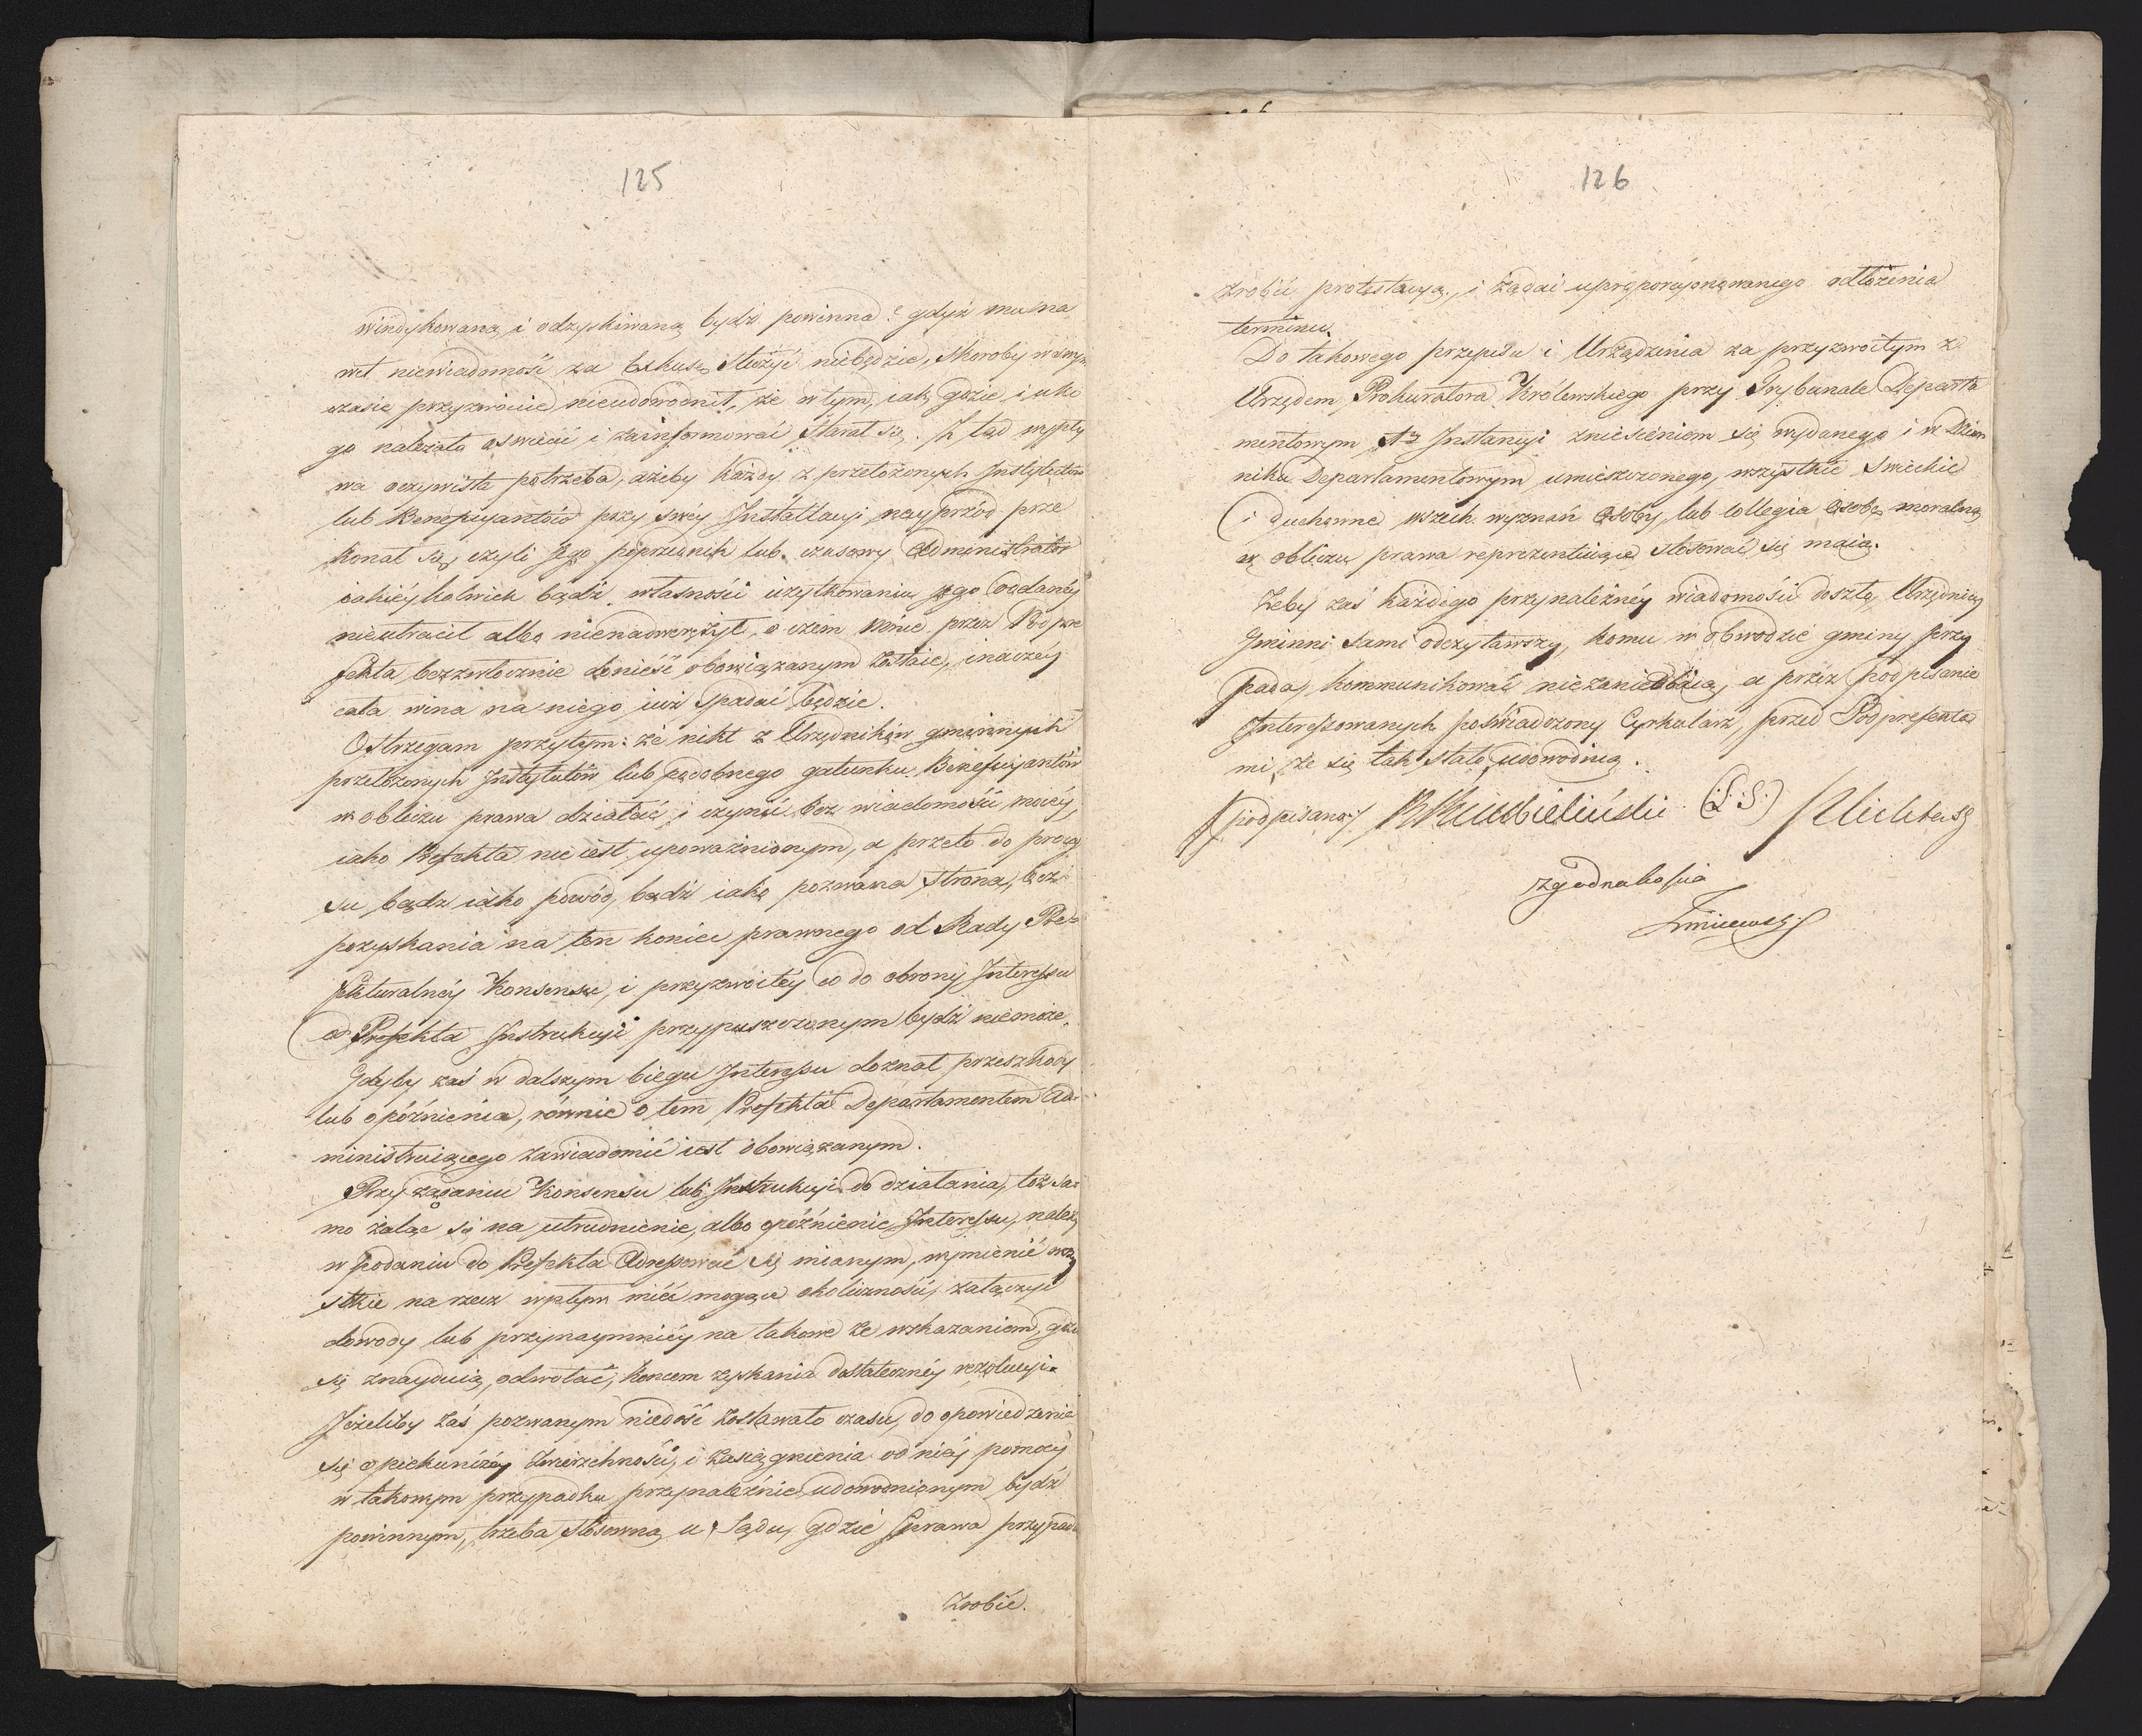 125
windykowaną, i odzyskiwaną bydź powinna? gdyż mu na
wet niewiadomość za Exkusę służyć niebędzie, skoroby w swym
czasie przyzwoicie nieudowodnił, że o tym, iak, gdzie, i u ko
go należało oswiecić i zainformować starał się. Z tąd wypły
wa oczywista potrzeba, ażeby każdy z przełożonych Instytutów
lub Beneficyantów przy swey Installacyi, nayprzód prze
konał się, czyli Jego poprzednik lub czasowy Administrator
iakieykolwiek bądź własności użytkowaniu jego oddanéy
nieutracił albo nienadwerężył, o czem mnie przez Podpre
fekta bezzwłocznie donieść obowiązanym zostaie, inaczéy
cała wina na niego iuż spadać będzie.
Ostrzegam przytym: że nikt z Urzędników gminnych
przełożonych Instytutów lub podobnego gatunku Beneficyantów
w obliczu prawa działać i czynić bez wiadomości moiéy,
iako Prefekta nie iest upoważnionym, a przeto do proces
su bądz iako powód, bądź iako pozwana strona, bez
pozyskania na ten koniec prawnego od Rady Pre=
fekturalnéy Konsensu, i przyzwoitéy co do obrony Interessu
od Prefekta Instrukcyi przypuszczonym bydź niemoże.
Gdyby zaś w dalszym biegu Interessu doznał przeszkody
lub opóźnienia, równie o tem Prefekta Departamentem Ad=
ministruiącego zawiadomić iest obowiązanym.
Przy żądaniu Konsensu lub Instrukcyi do działania, toż sa=
mo żaląc się na utrudnienie, albo opóźnienie Interessu, należy
w podaniu do Prefekta Adressować się mianym, wymienić wszy
stkie na rzecz wpływ mieć mogące okoliczności, załączyć
dowody lub przynaymniéy na takowe ze wskazaniem, gdzie
się znayduią, odwołać, koncem zyskania dostatecznéy rezolucyi.
Jeżeliby zaś pozwanym niedość zostawało czasu, do opowiedzenia
się opiekuńczéy Zwierzchności, i zasiągnienia od niéy pomocy
w takowym przypadku przynależnie udowodnionym bydź
powinnym, trzeba stosowną u Sądu, gdzie sprawa przypada
Zrobić.
126
Zrobić protestacyą, i żądać uproporcyonowanego odłożenia
terminu.
Do takowego przepisu i Urządzenia za przyzwoitym z
Urzędem Prokuratora Królewskiego przy Trybunale Departa
mentowym 1éy Instancyi zniesieniem się wydanego i w Dzien
niku Departamentowym umieszczonego, wszystkie Swieckie
i Duchowne wszech wyznań Osoby, lub Collegia Osobę moralną
w obliczu prawa reprezentuiące stosować się maią.
Żeby zaś każdego przynależnéy wiadomości doszło, Urzędnicy
Gminni sami odczytawszy, komu w obwodzie gminy przy
pada, kommunikować niezaniedbaią, a przez podpisanie
Interessowanych poświadczony Cyrkularz, przed Podprefekta
mi, że się tak stało, udowodnią.
(podpisano) (L.S.)
Zgodna kopia